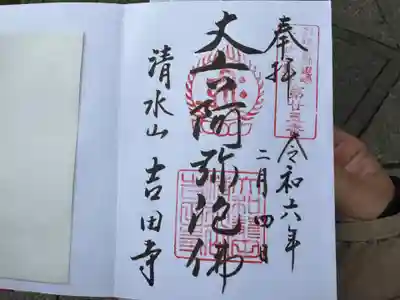 奉拝
令和六年
二月四日
丈六阿弥陀佛
清水山 吉田寺